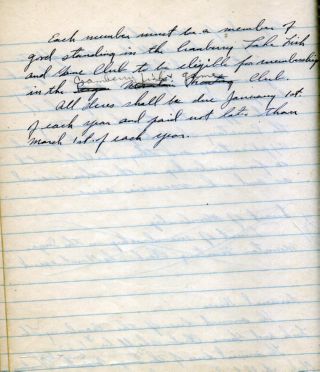 Each member must be a member of
good standing in the Cranbury Lake Fish
and Game Club to be eligible for membership
in the Club.
All dues shall be due January 1st.
of each year and paid not later than
March 1st. of each year.